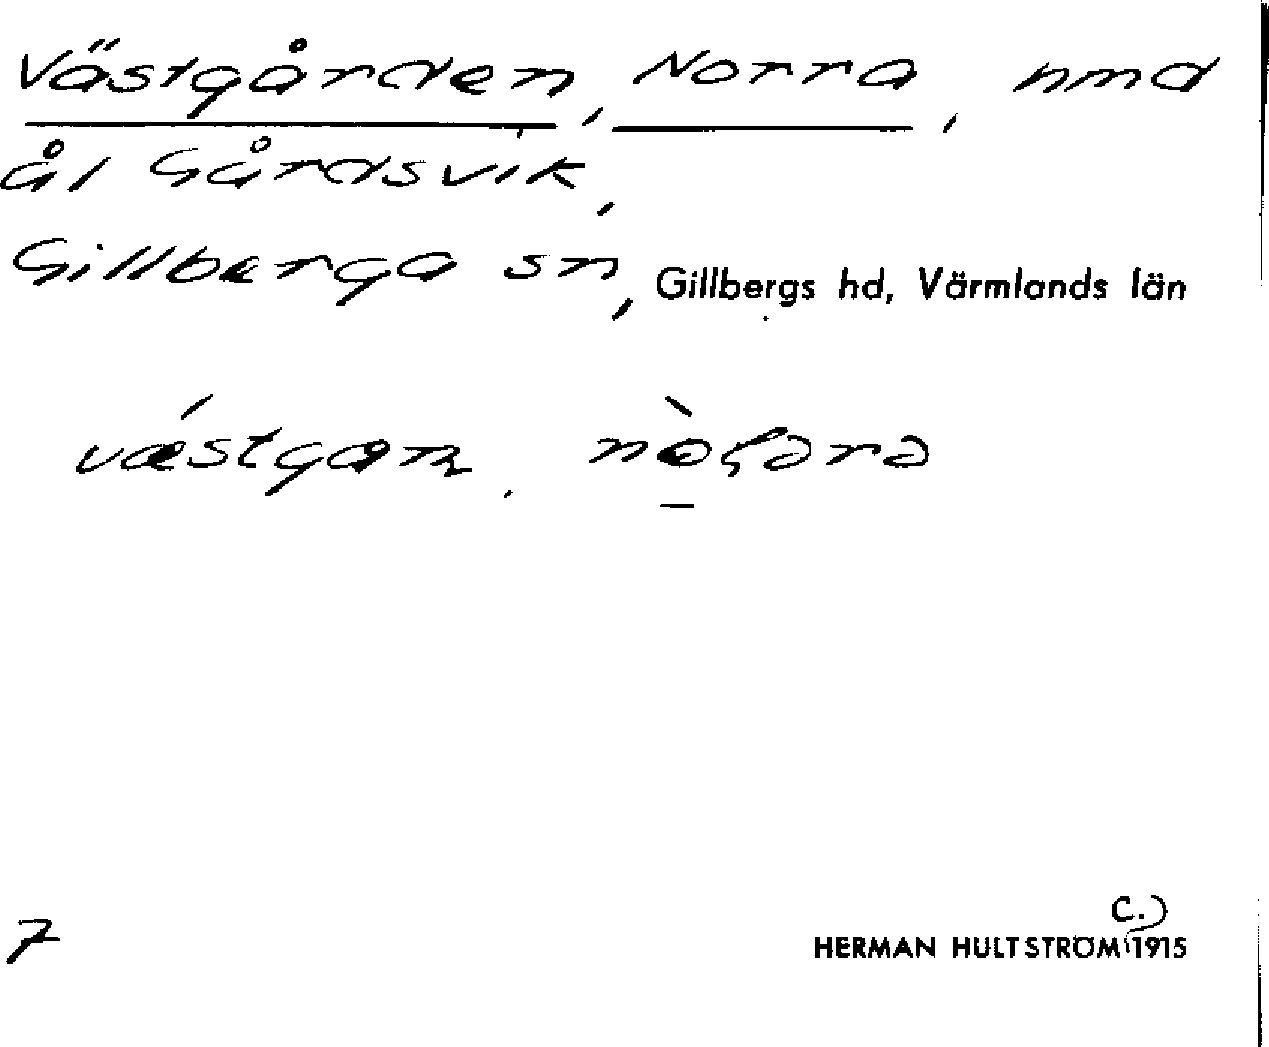 Västgården, Norra, hmd
ål Gårdsvik,
Gillberga sn, Gillbergs hd, Värmlands län
7
C.
HERMAN HULTSTRÖM 1915